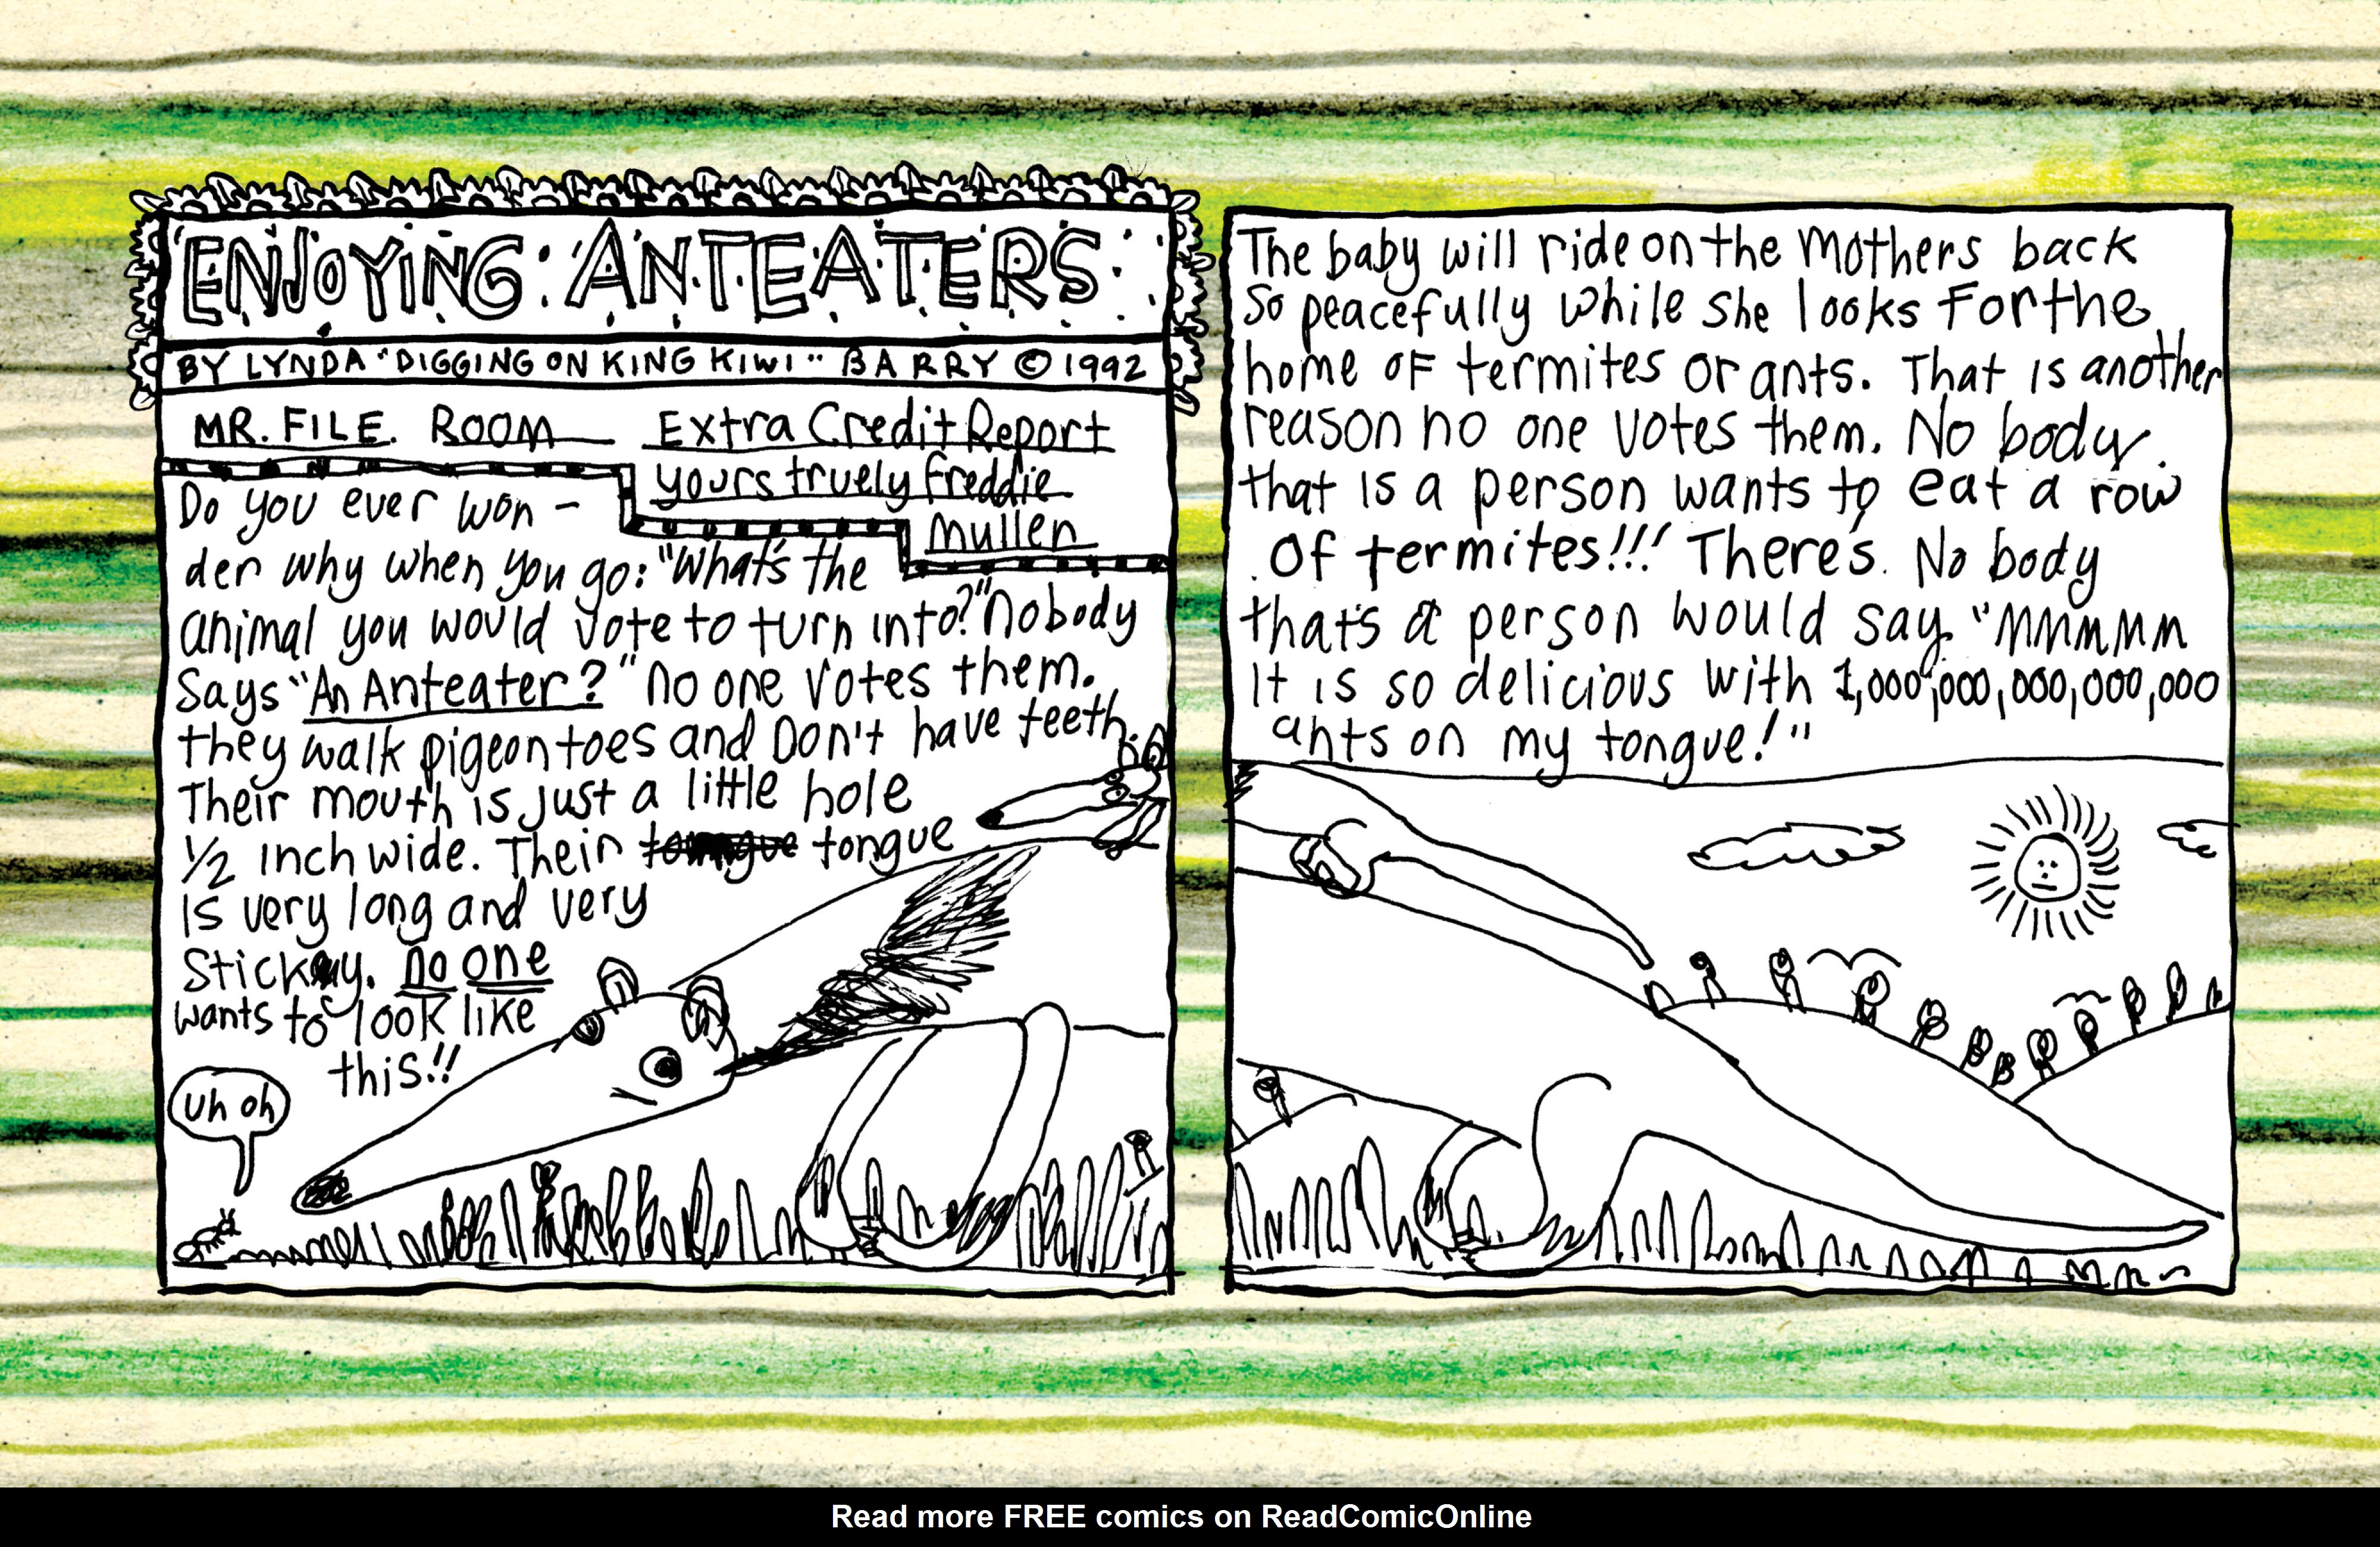 ENJOYING ANTEATERS
BY LYNDA "DIGGING ON KING KIWI" BARRY © 1992
MR. FILE. ROOM
Extra Credit Report
yours truely Freddie
Mullen
Do you ever won-
der why when you go: "What's the
animal you would vote to turn into?" nobody
Says "An Anteater?" no one votes them.
they walk pigeon toes and Don't have teeth.
Their mouth is just a little hole
1/2 inch wide. Their tongue tongue
is very long and very
sticky. no one
wants to look like
this!!
uh oh
The baby will ride on the Mothers back
So peacefully while she looks For the
home of termites or ants. That is another
reason no one votes them. No body
that is a person wants to eat a row
of termites!!! There's. No body
that's a person would say "MMMMM
It is so delicious with 1,000,000,000,000,000
ants on my tongue!"
Read more FREE comics on ReadComicOnline